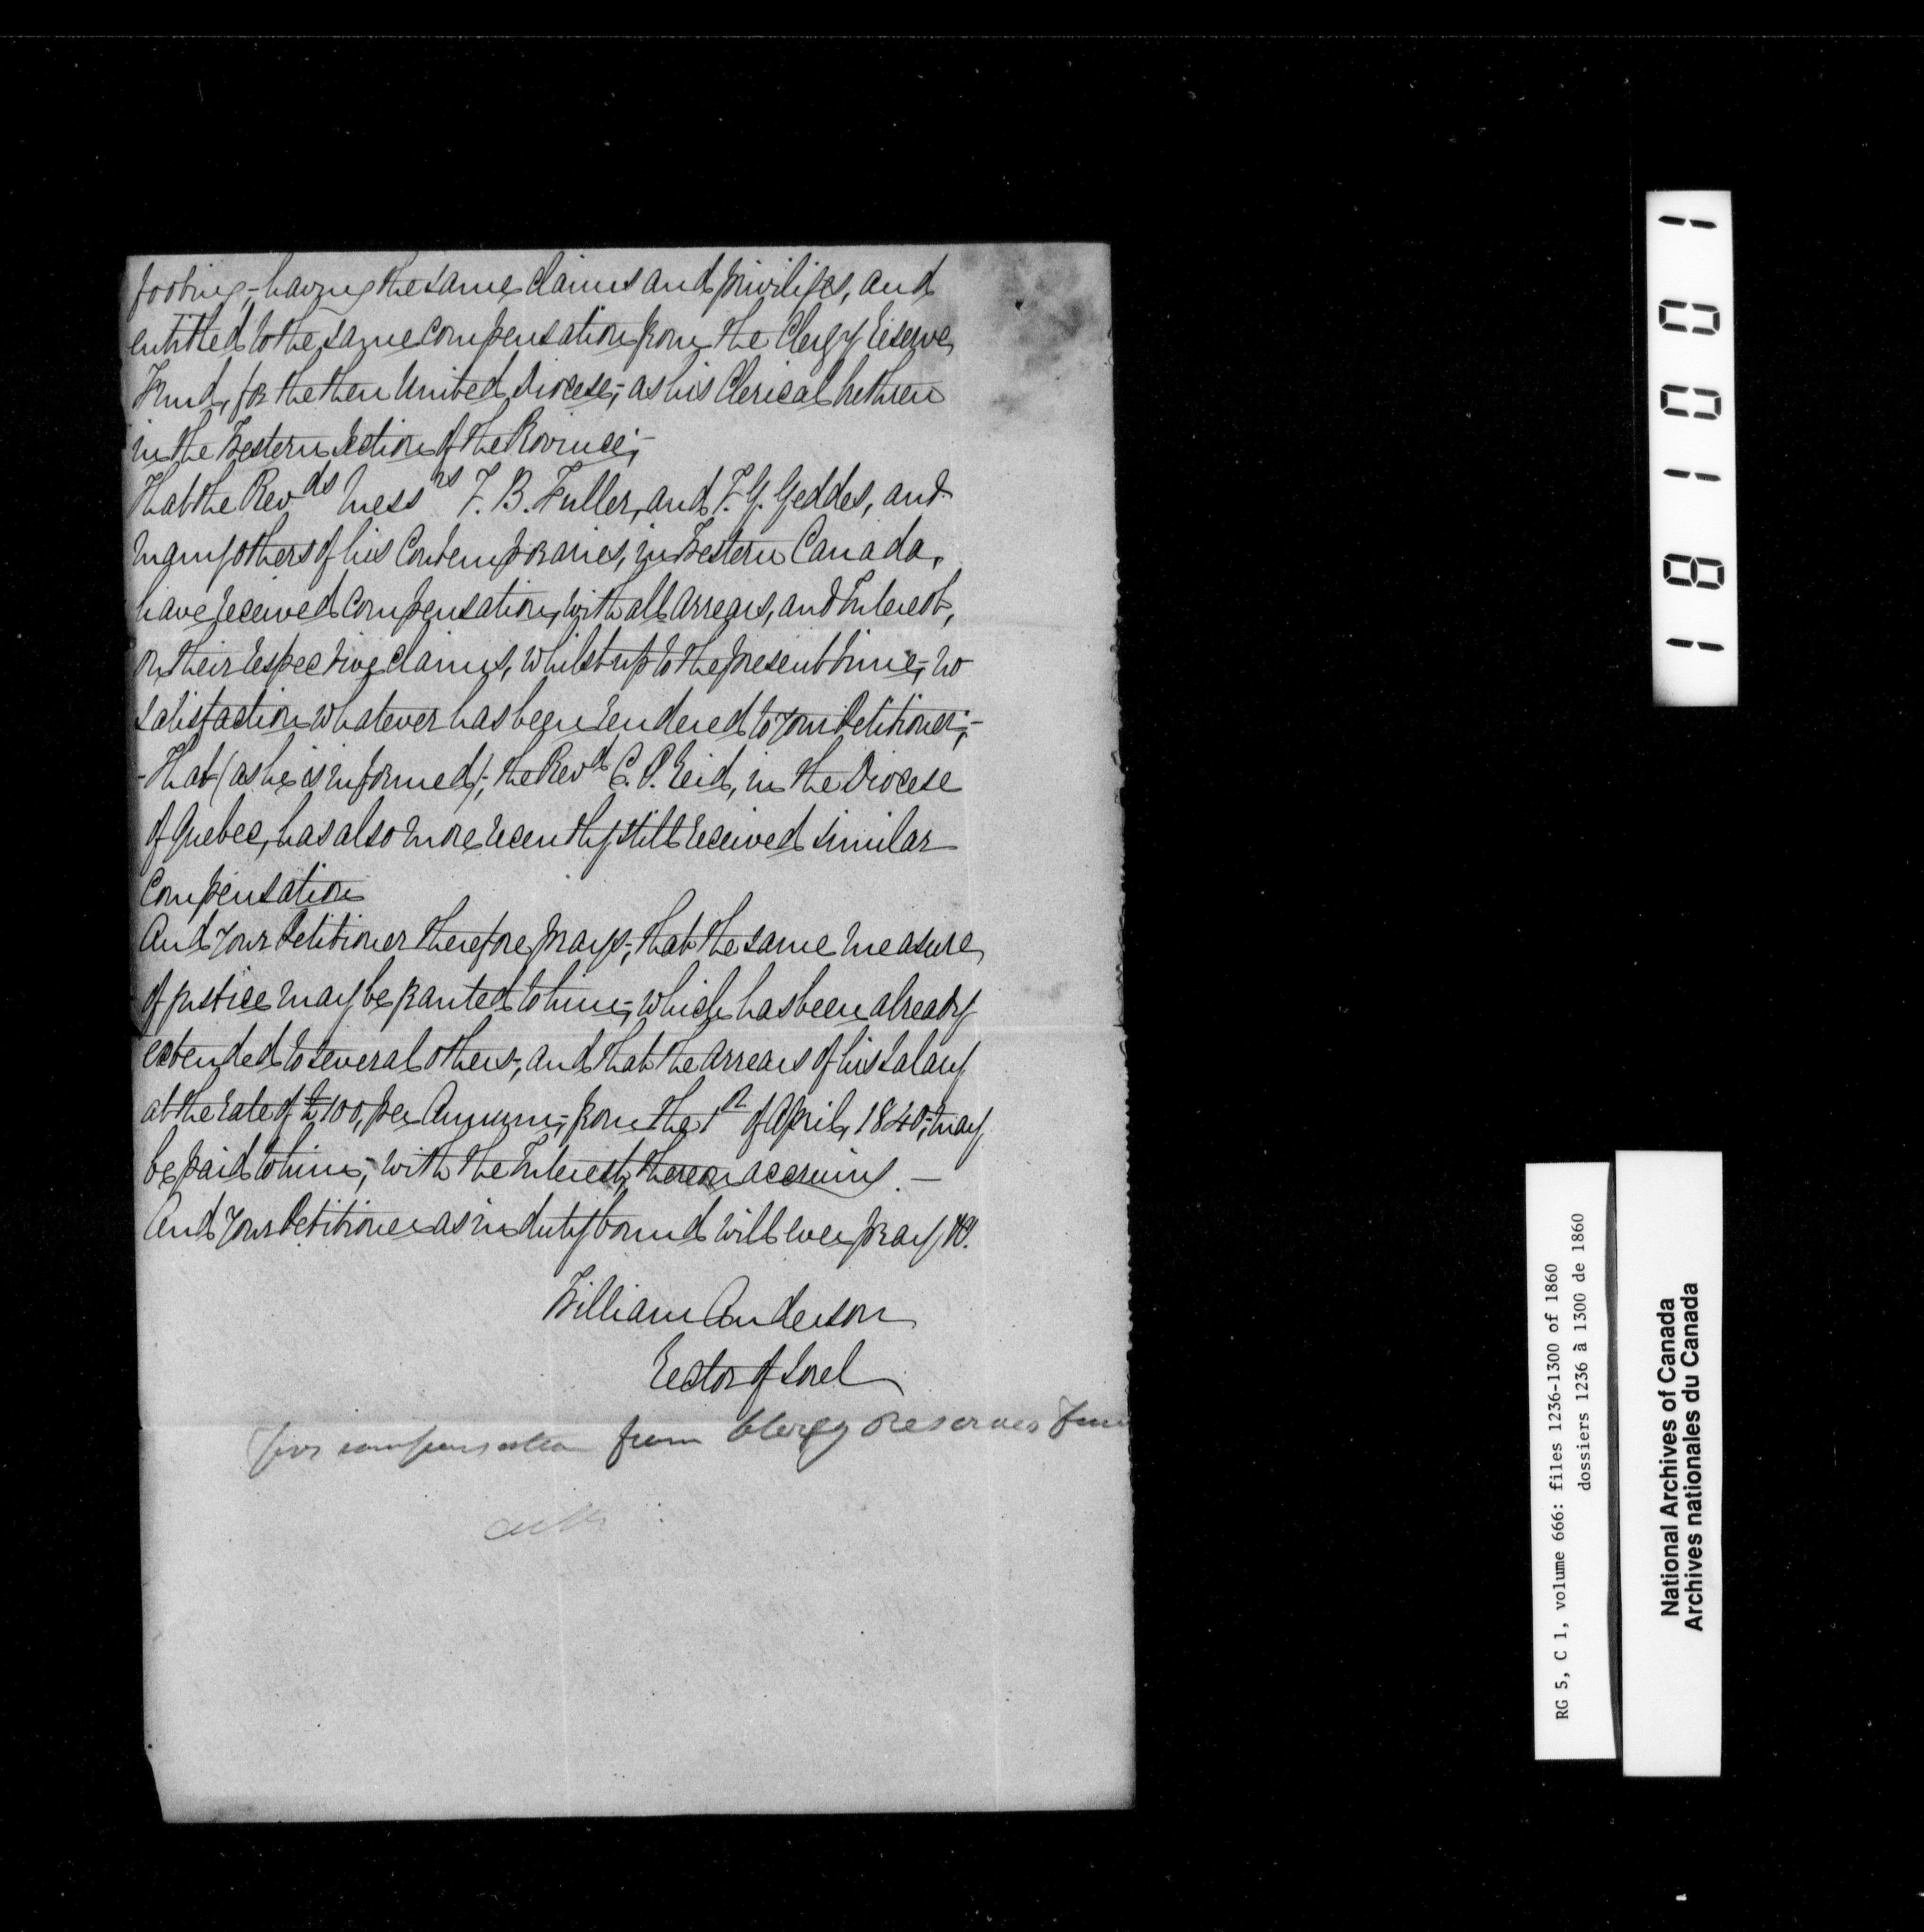 footing,-having the same claims and privileges, and
entitled to the same compensation from the Clergy Reserve
Fund, for the then United Diocese,- as his Clerical brethren
in the Western Section of the Province;-
That the Revds Messrs T. B. Fuller, and J. G. Geddes, and
many others of his Contemporaries, in Western Canada,
have received compensation, with all arrears, and Interest,
on their respective claims, whilst up to the present time,- no
satisfaction whatever has been rendered to your Petitioner;-
-That (as he is informed), the Revd C. P. Reid, in the Diocese
of Quebec, has also more recently still received similar
Compensation
And your Petitioner therefore prays,- that the same measure
of justice may be granted to him,- which has been already
extended to several others,- and that the arrears of his salary
at the rate of £100, per Annum,- from the 1st of April, 1840,- may
be paid to him,- with the Interest, thereon accruing. —
And your Petitioner as in duty bound will ever pray, &c.
William Anderson
Rector of Sorel
for compensation from Clergy Reserves Fun
1 8 1 0 0 1
RG 5, C 1, volume 666: files 1236-1300 of 1860
dossiers 1236 à 1300 de 1860
National Archives of Canada
Archives nationales du Canada